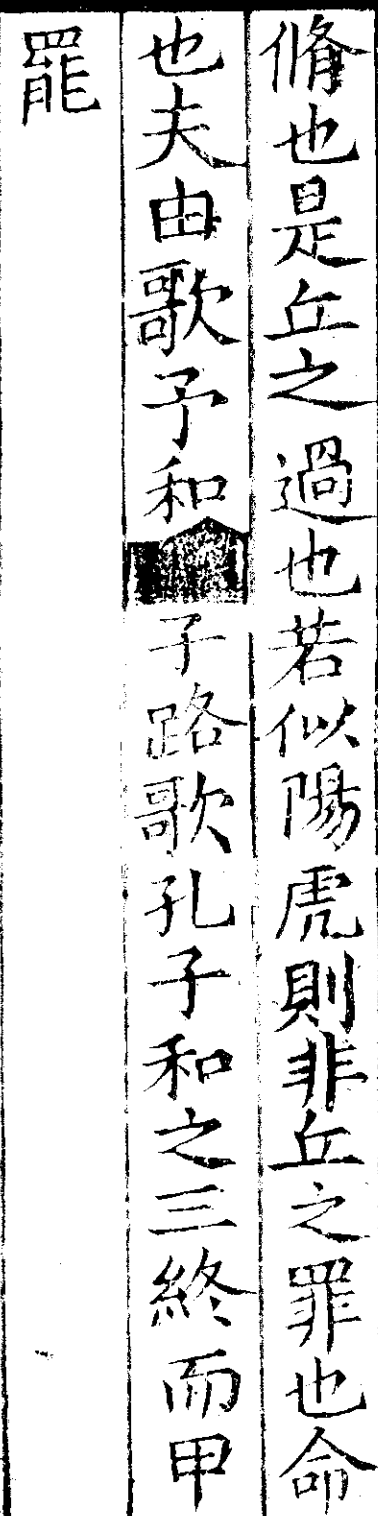 脩也是丘之過也若似陽虎則非丘之罪也命
也夫由歌予和子路歌孔子和之三終而甲
罷